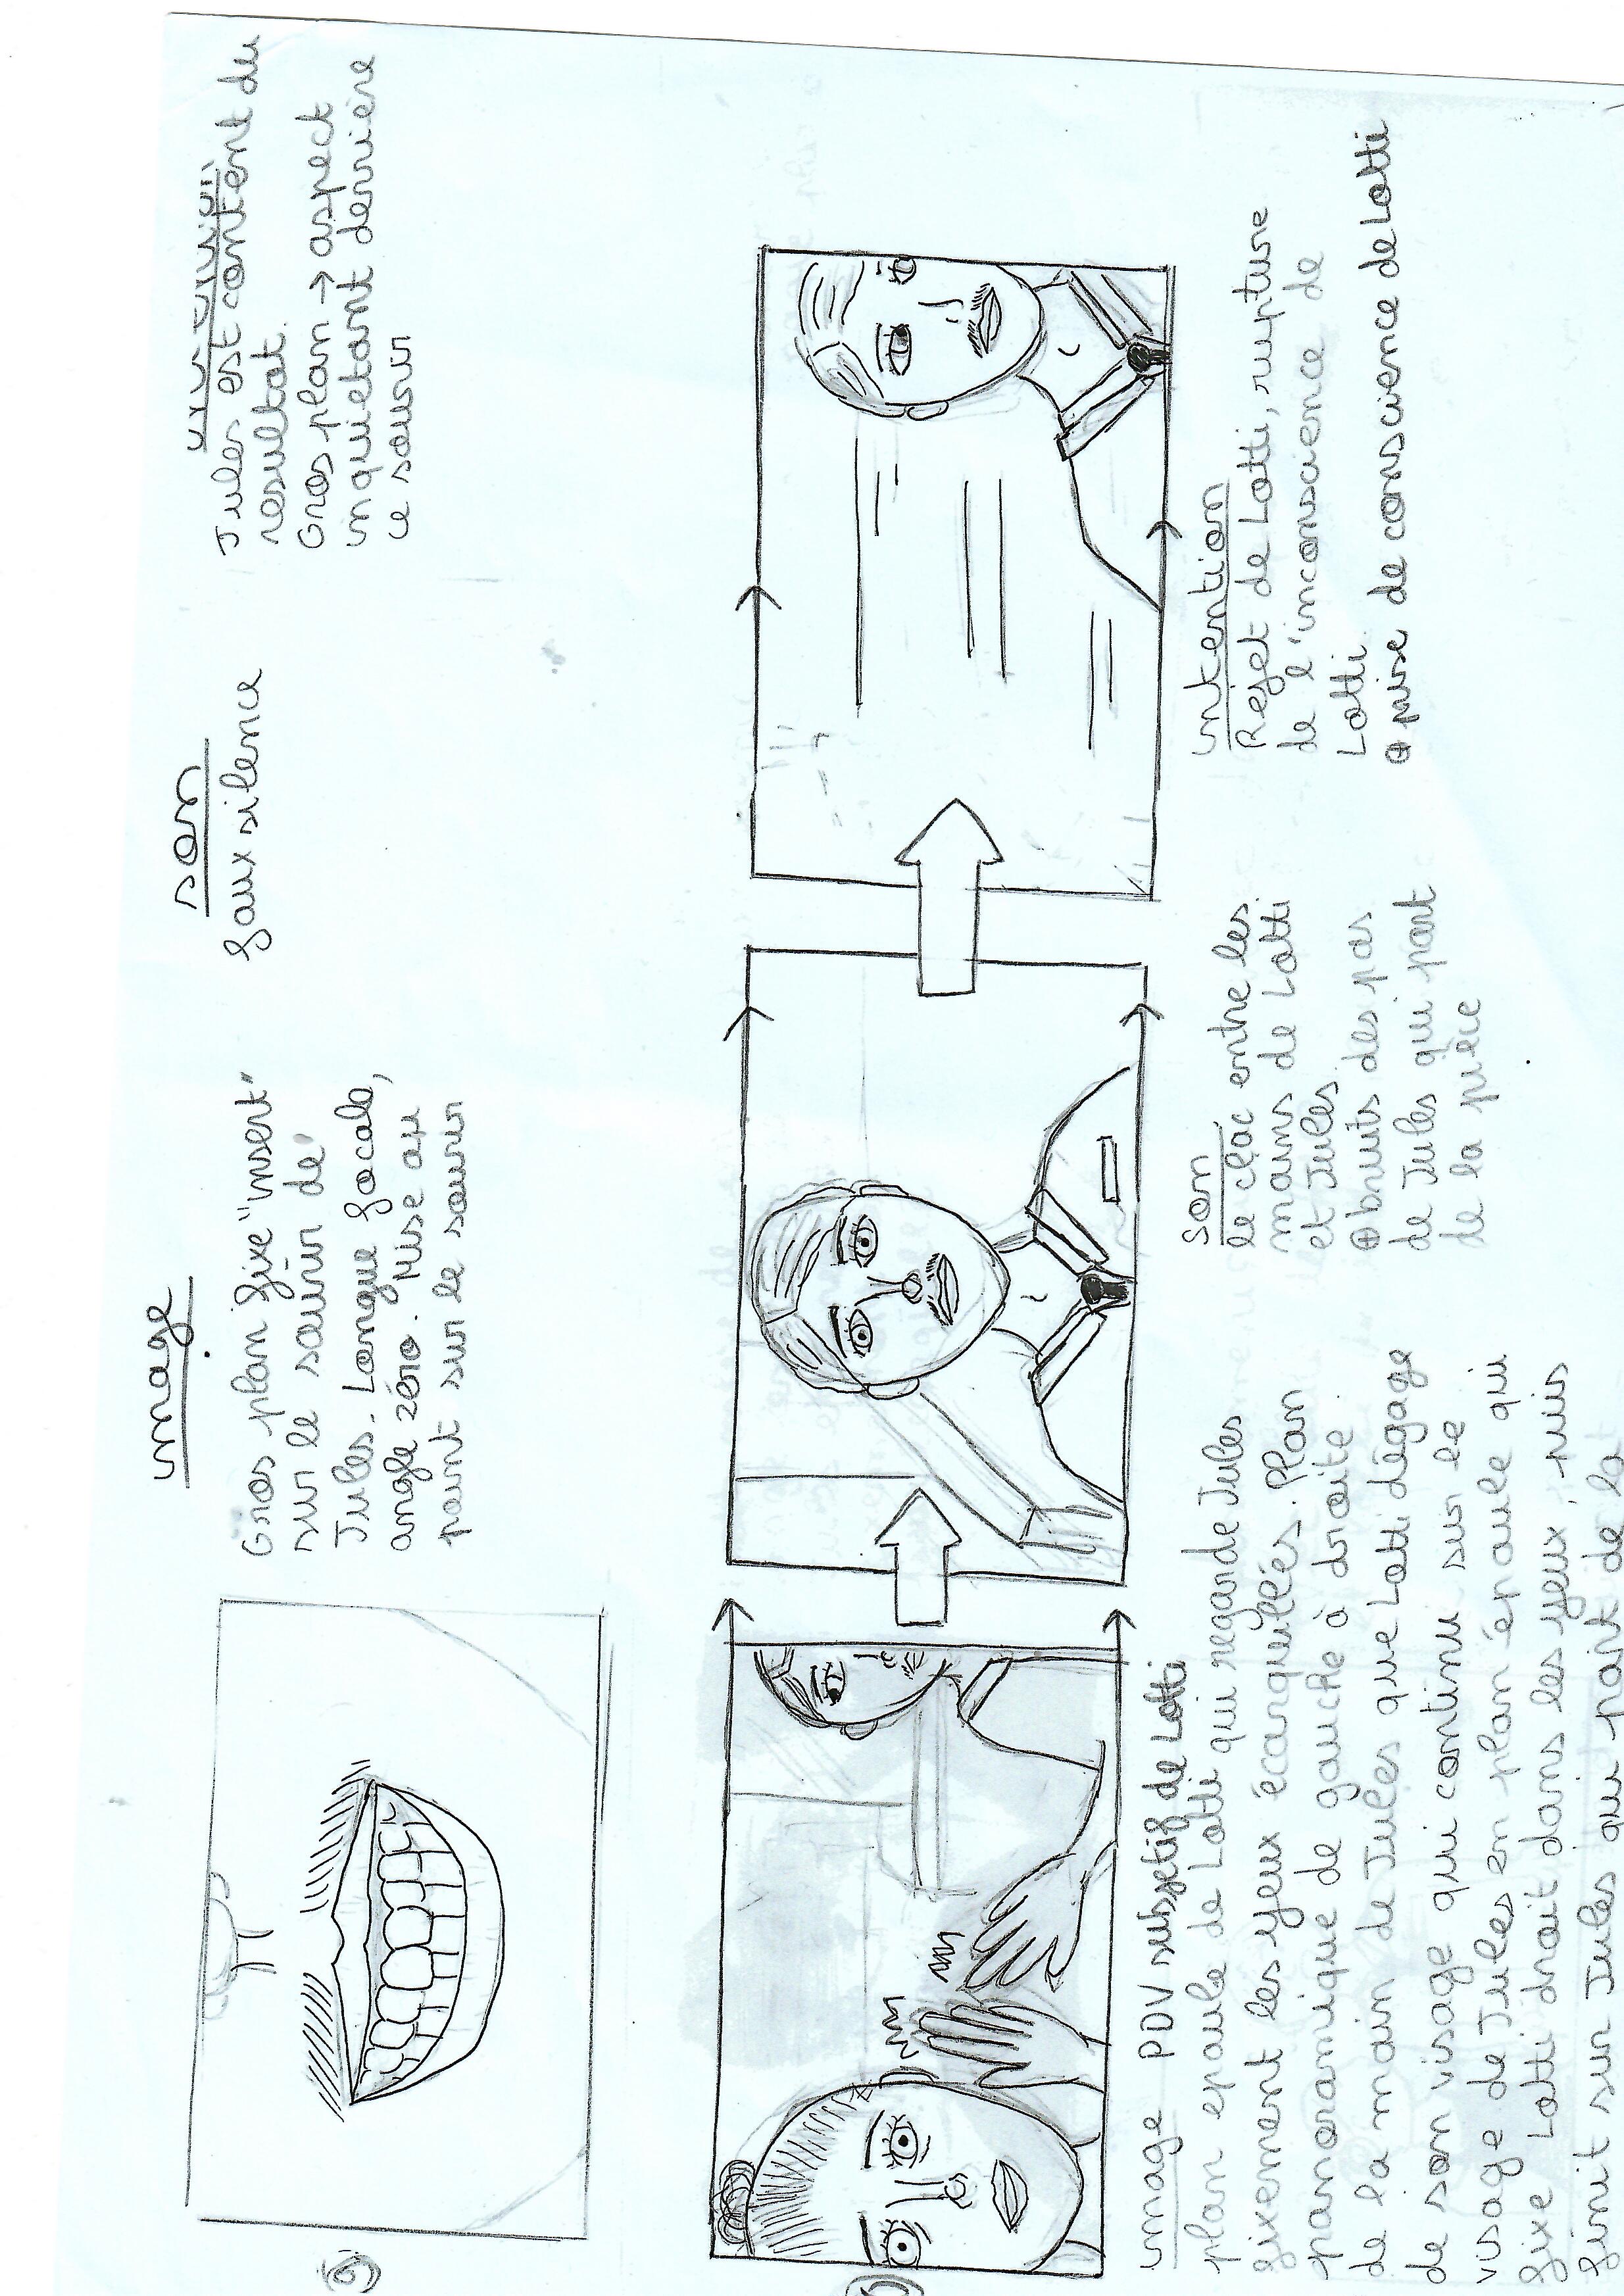 9)
image
Gros plan fixe "insert"
sur le sourir de
Jules. Longue focale,
angle zéro. Mise au
point sur le sourir
son
faux silence
intention
Jules est contént du
resultat.
Gros plan → aspect
inquietant derrière
ce sourir
image PDV subjetif de Lotti
plan epaule de Lotti qui regarde Jules
fixement les yeux écarquillés. Plan
panoramique de gauche à droite
de la main de Jules que Lotti dégage
de son visage qui continu sur le
visage de Jules en plan épaule qui
fixe Lotti droit dans les yeux, puis
finit sur Jules qui part de la
son
le clac entre les
mains de Lotti
et Jules
⊕ bruits des pas
de Jules qui part
de la pièce
intention
Rejet de Lotti, rupture
de l'inconscience de
Lotti
⊕ prise de conscience de Lotti